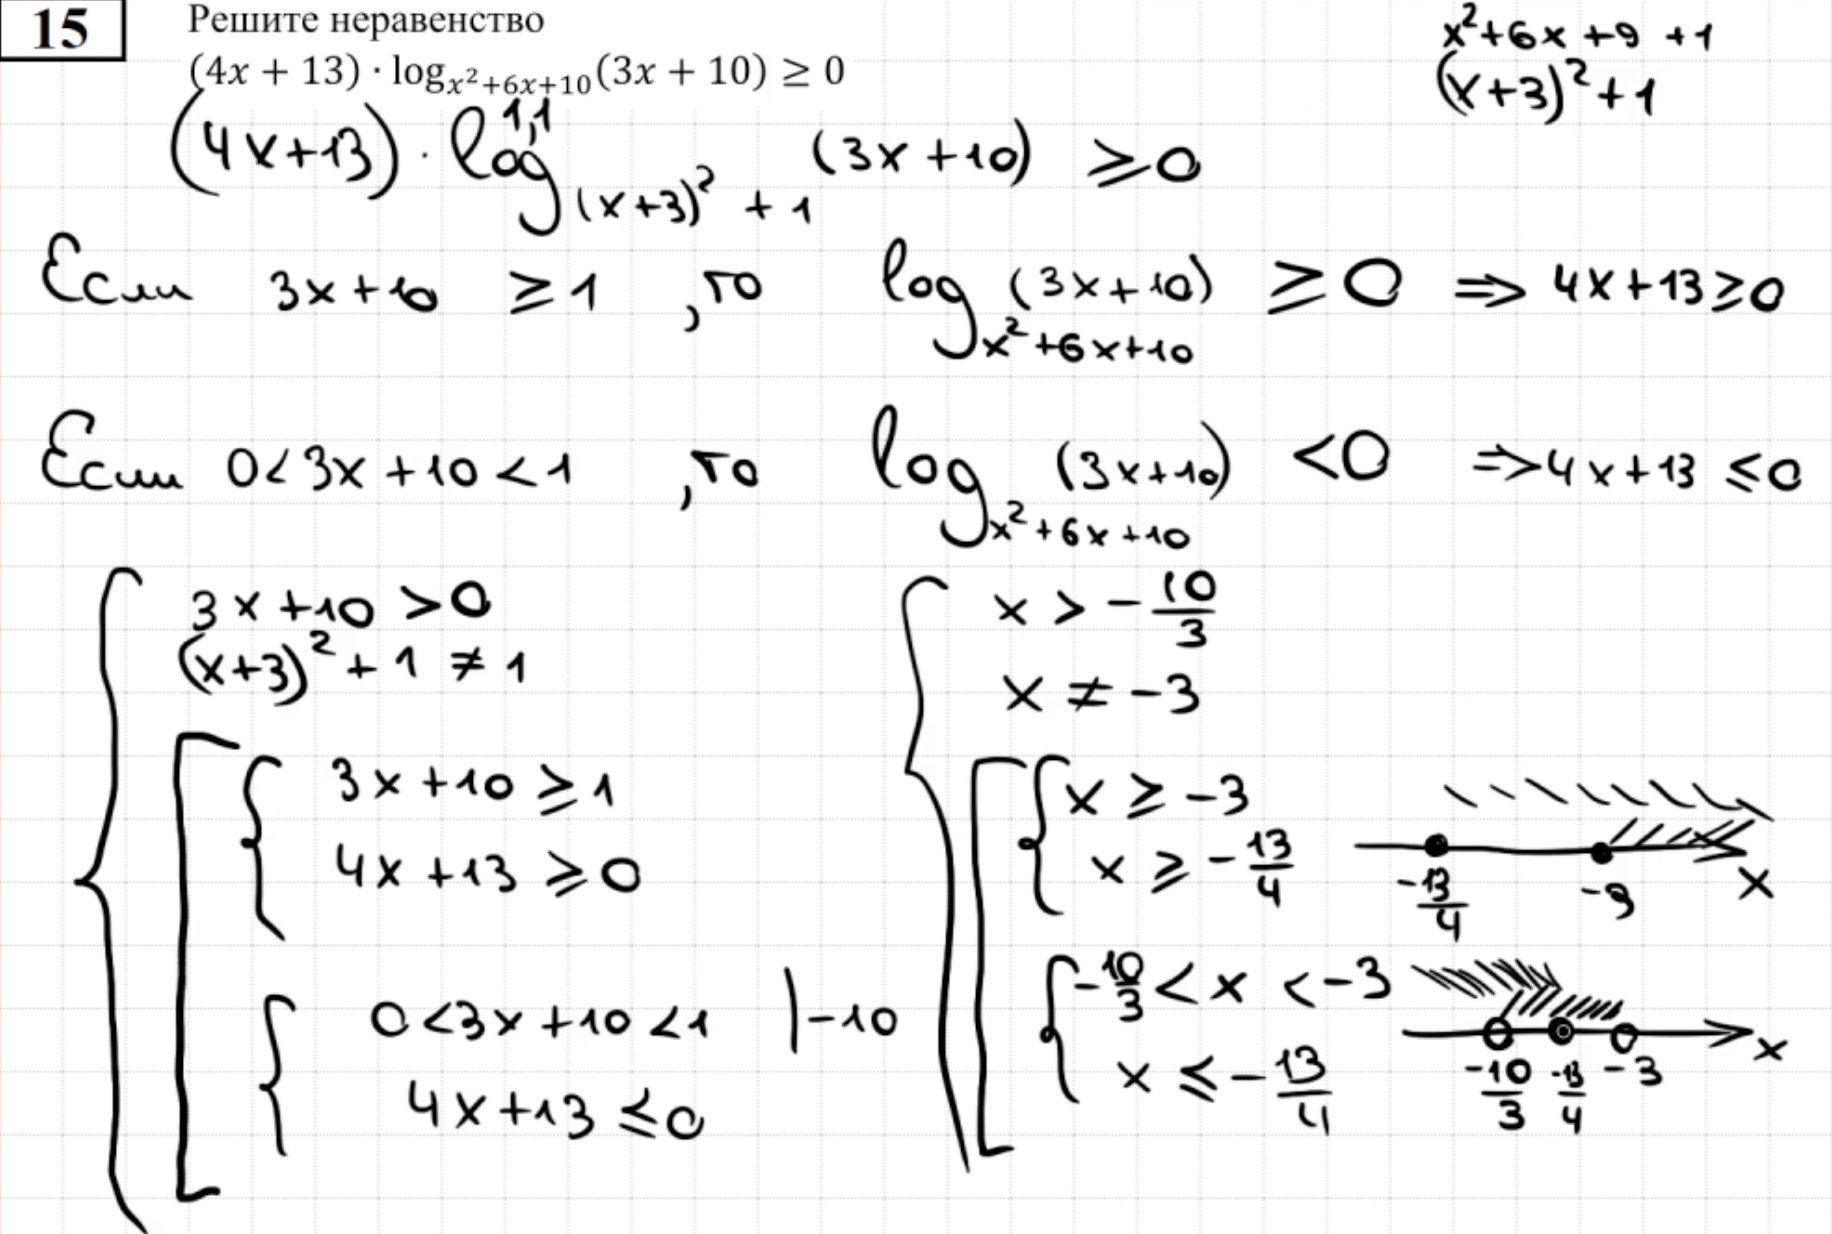 15 Решите неравенство
(4x + 13) · log_{x²+6x+10}(3x + 10) ≥ 0
x²+6x+9 +1
(x+3)²+1
1,1
(4x+13) · log_{(x+3)² + 1} (3x+10) ≥0
Если 3x+10 ≥1 ,то log_{x²+6x+10} (3x+10) ≥0 ⇒ 4x+13≥0
Если 0<3x+10<1 ,то log_{x²+6x+10} (3x+10) <0 ⇒4x+13 ≤0
3x+10 >0
(x+3)²+1 ≠1
3x+10 ≥1
4x+13 ≥0
0<3x+10<1 |-10
4x+13 ≤0
x > -10/3
x ≠ -3
x ≥ -3
x ≥ -13/4
-13/4 -3 x
-10/3 < x < -3
x ≤ -13/4
-10/3 -13/4 -3 x